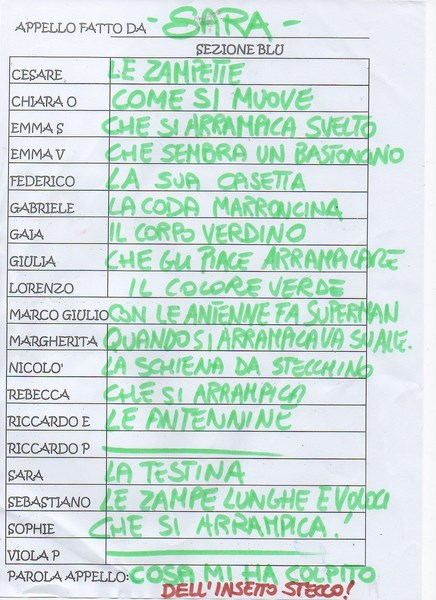 APPELLO FATTO DA - SARA -
SEZIONE BLU
CESARE LE ZAMPETTE
CHIARA O COME SI MUOVE
EMMA S CHE SI ARRAMPICA SVELTO
EMMA V CHE SEMBRA UN BASTONCINO
FEDERICO LA SUA CASETTA
GABRIELE LA CODA MARRONCINA
GAIA IL CORPO VERDINO
GIULIA CHE GLI PIACE ARRAMPICARE
LORENZO IL COLORE VERDE
MARCO GIULIO CON LE ANTENNE FA SUPERMAN
MARGHERITA QUANDO SI ARRAMPICAVA SU ALLE.
NICOLO' LA SCHIENA DA STECCHINO
REBECCA CHE SI ARRAMPICA
RICCARDO E LE ANTENNINE
RICCARDO P
SARA LA TESTINA
SEBASTIANO LE ZAMPE LUNGHE E VELOCI
SOPHIE CHE SI ARRAMPICA.
VIOLA P
PAROLA APPELLO: COSA MI HA COLPITO
DELL'INSETTO STECCO!